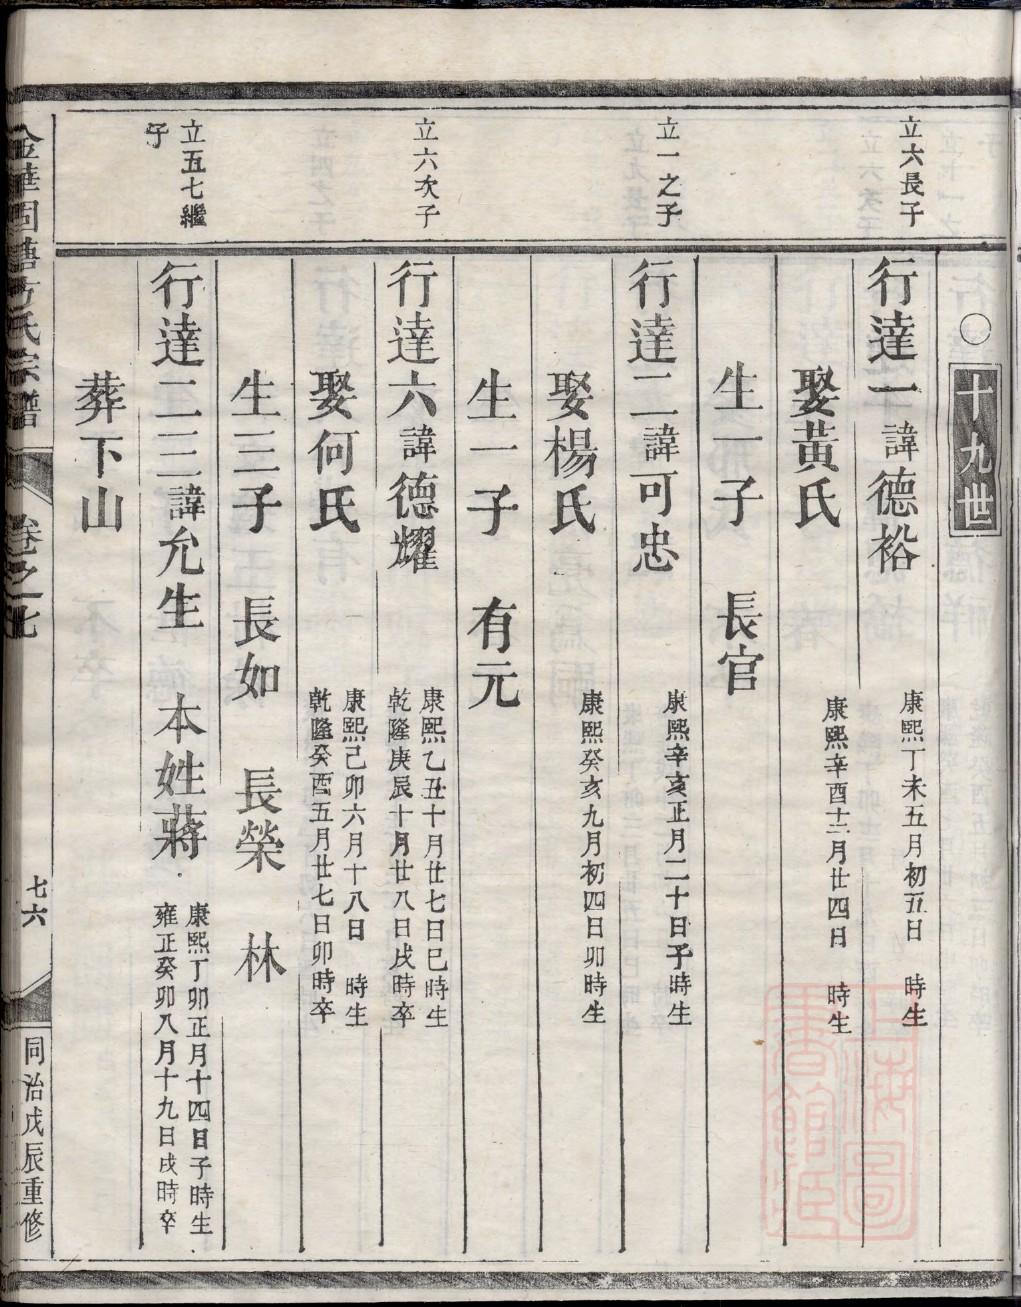 〇十九世
立六長子
行達一諱德裕 康熙丁未五月初五日 時生
娶黃氏 康熙辛酉十二月廿四日 時生
生一子 長官
立一之子
行達二諱可忠 康熙辛亥正月二十日子時生
娶楊氏 康熙癸亥九月初四日卯時生
生一子 有元
立六次子
行達六諱德耀 康熙乙丑十月廿七日巳時生
乾隆庚辰十月廿八日戌時卒
娶何氏 康熙己卯六月十八日 時生
乾隆癸酉五月廿七日卯時卒
生三子 長如 長榮 林
立五七繼子
行達二三諱允生 本姓蔣 康熙丁卯正月十四日子時生
雍正癸卯八月十九日戌時卒
葬下山
金華固塘方氏宗譜 卷之七 七六 同治戊辰重修
上海圖書館藏